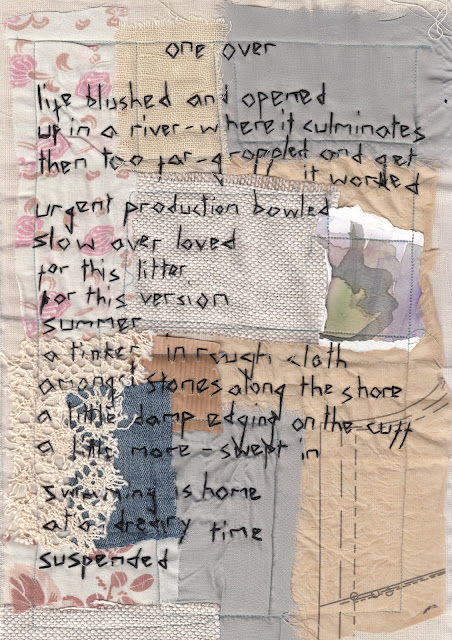 one over
life blushed and opened
up in a river-where it culminates
then too far-grappled and get
it worked
urgent production bowled
slow over loved
for this litter
for this version
summer
a tinker in rough cloth
amongst stones along the shore
a little damp edging on the cuff
a little more - swept in
swimming is home
at a dreary time
suspended